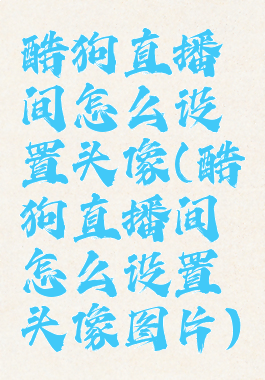 酷狗直播
间怎么设
置头像(酷
狗直播间
怎么设置
头像图片)